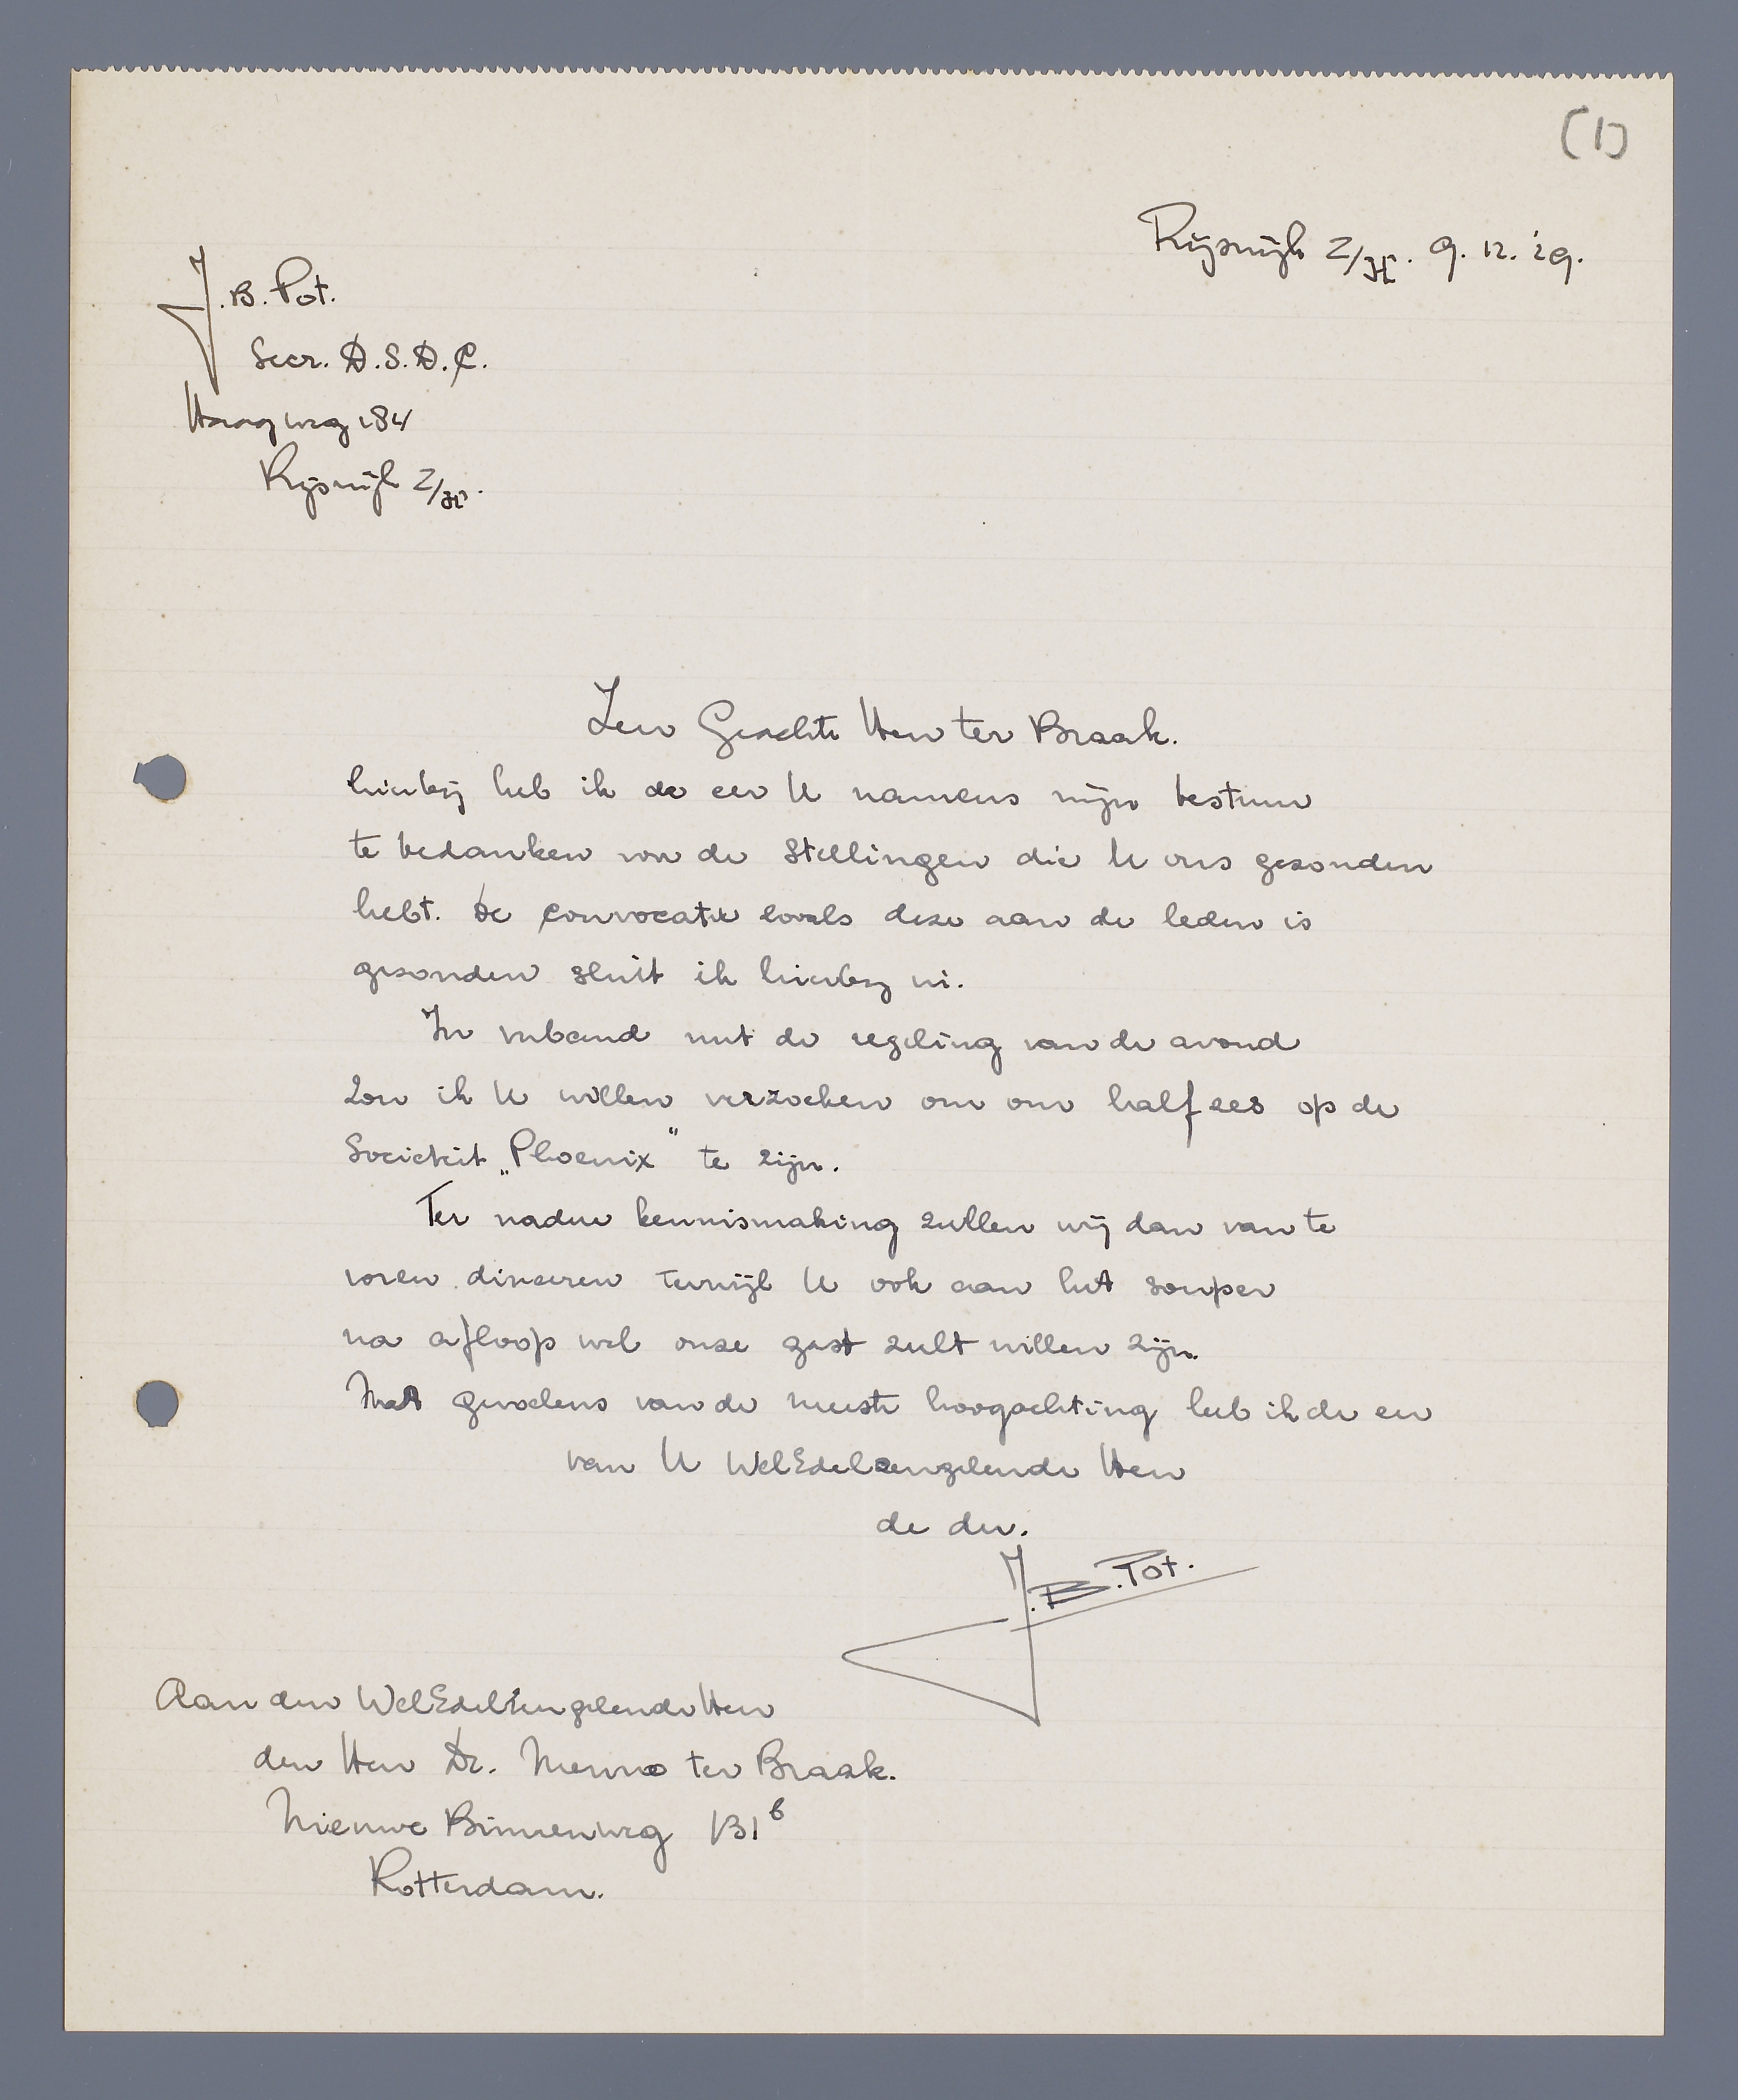 (1)
Rijswijk Z/H. 9. 12. '29.
J. B. Pot.
Secr. D.S.D.C.
Haagweg 184
Rijswijk Z/H.
Zeer Geachte Heer ter Braak.
hierbij heb ik de eer U namens mijn bestuur
te bedanken voor de stellingen die U ons gezonden
hebt. De convocatie zooals deze aan de leden is
gezonden sluit ik hierbij in.
In verband met de regeling van de avond
zou ik U willen verzoeken om om half zes op de
Societeit „Phoenix" te zijn.
Ter nadere kennismaking zullen wij dan van te
voren dineeren terwijl U ook aan het souper
na afloop wel onze gast zult willen zijn.
Met gevoelens van de meeste hoogachting heb ik de eer
van U WelEdelzeergeleerde Heer
de dw.
J.B.Pot.
Aan den WelEdelZeergeleerde Heer
den Heer Dr. Menno ter Braak.
Nieuwe Binnenweg 131b
Rotterdam.